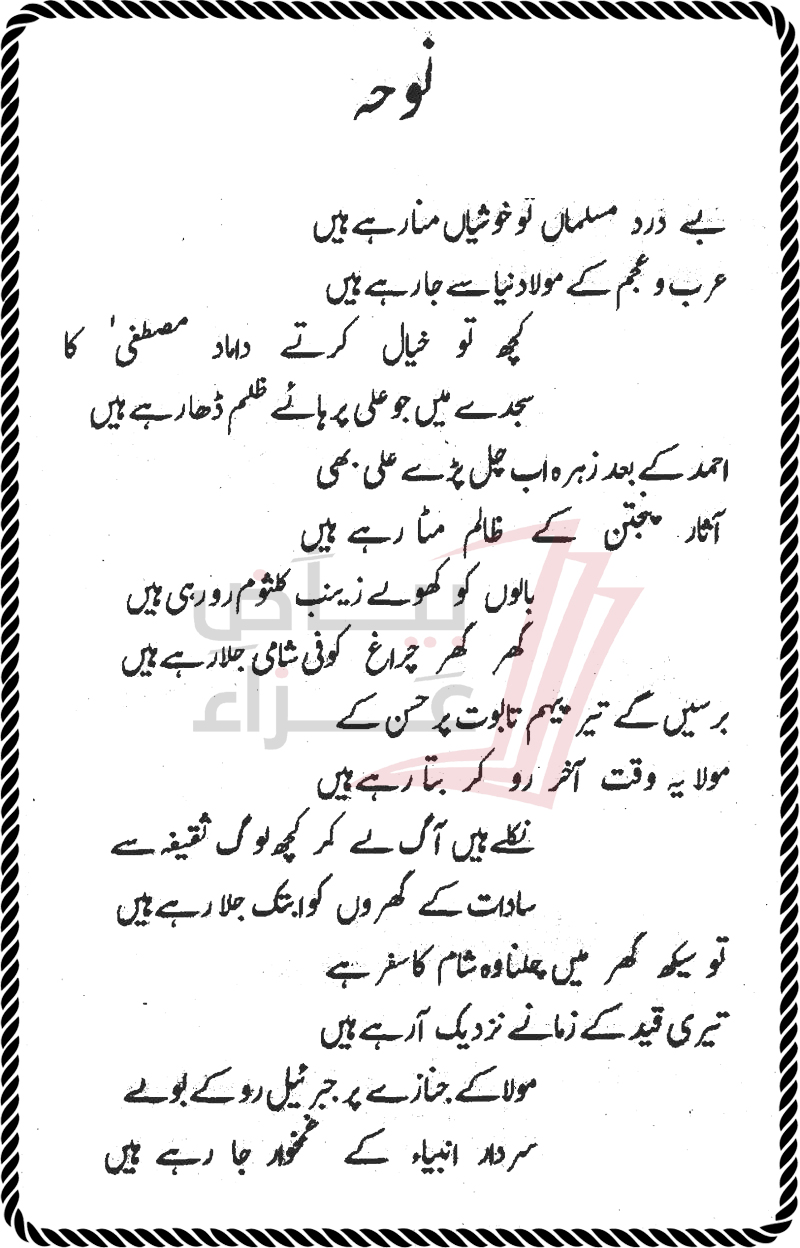 نوحہ
بے درد مسلماں تو خوشیاں منا رہے ہیں
عرب و عجم کے مولا دنیا سے جا رہے ہیں
کچھ تو خیال کرتے داماد مصطفیٰ کا
سجدے میں جو علی پر ہائے ظلم ڈھا رہے ہیں
احمد کے بعد زہرہ اب چل پڑے علی بھی
آثار پنجتن کے ظالم مٹا رہے ہیں
بالوں کو کھولے زینب کلثوم رو رہی ہیں
گھر گھر چراغ کوفی شامی جلا رہے ہیں
برسیں گے تیر پیہم تابوت پر حسن کے
مولا یہ وقت آخر رو کر بتا رہے ہیں
نکلے ہیں آگ لے کر کچھ لوگ ثقیفہ سے
سادات کے گھروں کو ابتک جلا رہے ہیں
تو سیکھ گھر میں چلنا وہ شام کا سفر ہے
تیری قید کے زمانے نزدیک آ رہے ہیں
مولا کے جنازے پر جبرئیل رو کے بولے
سردار انبیاء کے غمخوار جا رہے ہیں
بیاض
عزاء